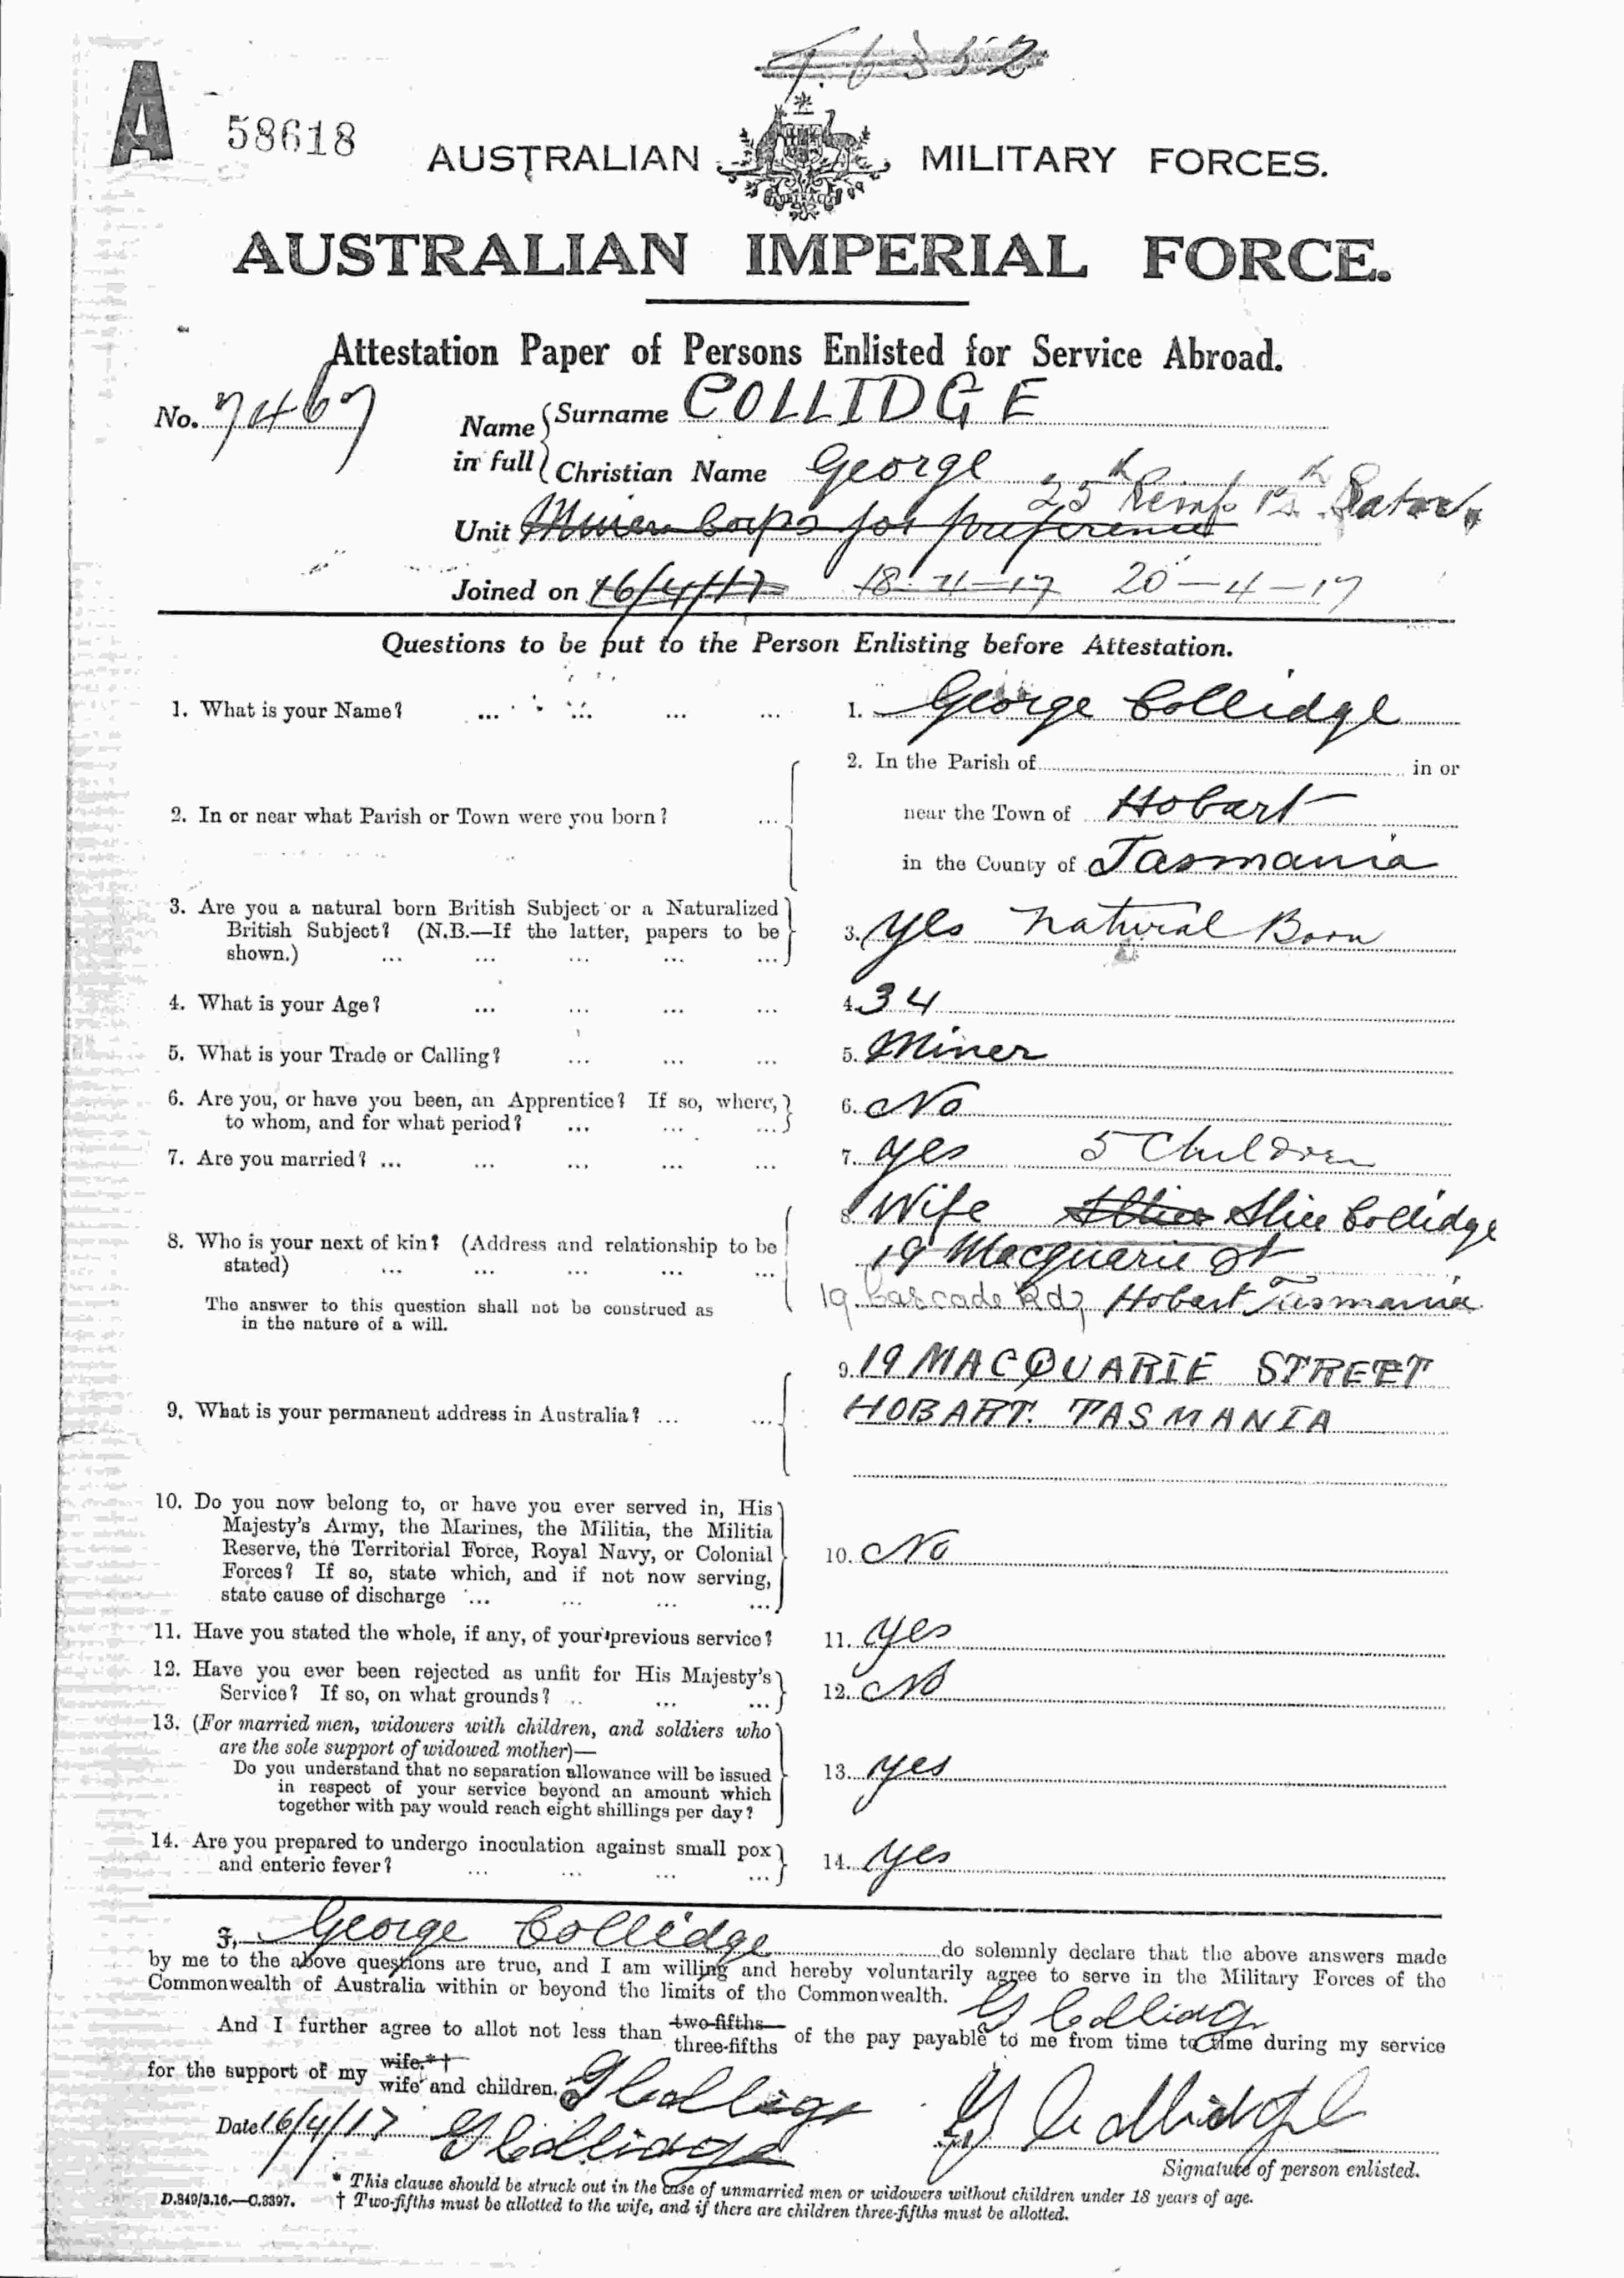 T.6352
A 58618
AUSTRALIAN MILITARY FORCES.
AUSTRALIAN IMPERIAL FORCE.
Attestation Paper of Persons Enlisted for Service Abroad.
No. 7467
Name in full Surname COLLIDGE
Christian Name George
25th Reinf 12th
Unit Miners Corps for preference
Joined on 16/4/17 18-4-17 20-4-17
Questions to be put to the Person Enlisting before Attestation.
1. What is your Name? ... ... ... ... 1. George Collidge
2. In or near what Parish or Town were you born? ... 2. In the Parish of in or
near the Town of Hobart
in the County of Tasmania
3. Are you a natural born British Subject or a Naturalized
British Subject? (N.B.—If the latter, papers to be
shown.) ... ... ... ... ... 3. yes Natural Born
4. What is your Age? ... ... ... ... 4. 34
5. What is your Trade or Calling? ... ... ... 5. Miner
6. Are you, or have you been, an Apprentice? If so, where,
to whom, and for what period? ... ... ... 6. No
7. Are you married? ... ... ... ... ... 7. yes 5 Children
8. Who is your next of kin? (Address and relationship to be
stated) ... ... ... ... ...
The answer to this question shall not be construed as
in the nature of a will.
8. Wife Alice Alice Collidge
19 Macquarie St
19 Cascade Rd, Hobart Tasmania
9. What is your permanent address in Australia? ... ...
9. 19 MACQUARIE STREET
HOBART. TASMANIA
10. Do you now belong to, or have you ever served in, His
Majesty's Army, the Marines, the Militia, the Militia
Reserve, the Territorial Force, Royal Navy, or Colonial
Forces? If so, state which, and if not now serving,
state cause of discharge ... ... ... ... 10. No
11. Have you stated the whole, if any, of your previous service? 11. yes
12. Have you ever been rejected as unfit for His Majesty's
Service? If so, on what grounds? .. ... ... 12. No
13. (For married men, widowers with children, and soldiers who
are the sole support of widowed mother)—
Do you understand that no separation allowance will be issued
in respect of your service beyond an amount which
together with pay would reach eight shillings per day? 13. yes
14. Are you prepared to undergo inoculation against small pox
and enteric fever? ... ... ... ... 14. yes
I, George Collidge do solemnly declare that the above answers made
by me to the above questions are true, and I am willing and hereby voluntarily agree to serve in the Military Forces of the
Commonwealth of Australia within or beyond the limits of the Commonwealth.
G Collidge
And I further agree to allot not less than two-fifths three-fifths of the pay payable to me from time to time during my service
for the support of my wife.*† wife and children. G Collidge
Date 16/4/17 G Collidge G Collidge
Signature of person enlisted.
* This clause should be struck out in the case of unmarried men or widowers without children under 18 years of age.
D.849/3.16.—C.3397. † Two-fifths must be allotted to the wife, and if there are children three-fifths must be allotted.